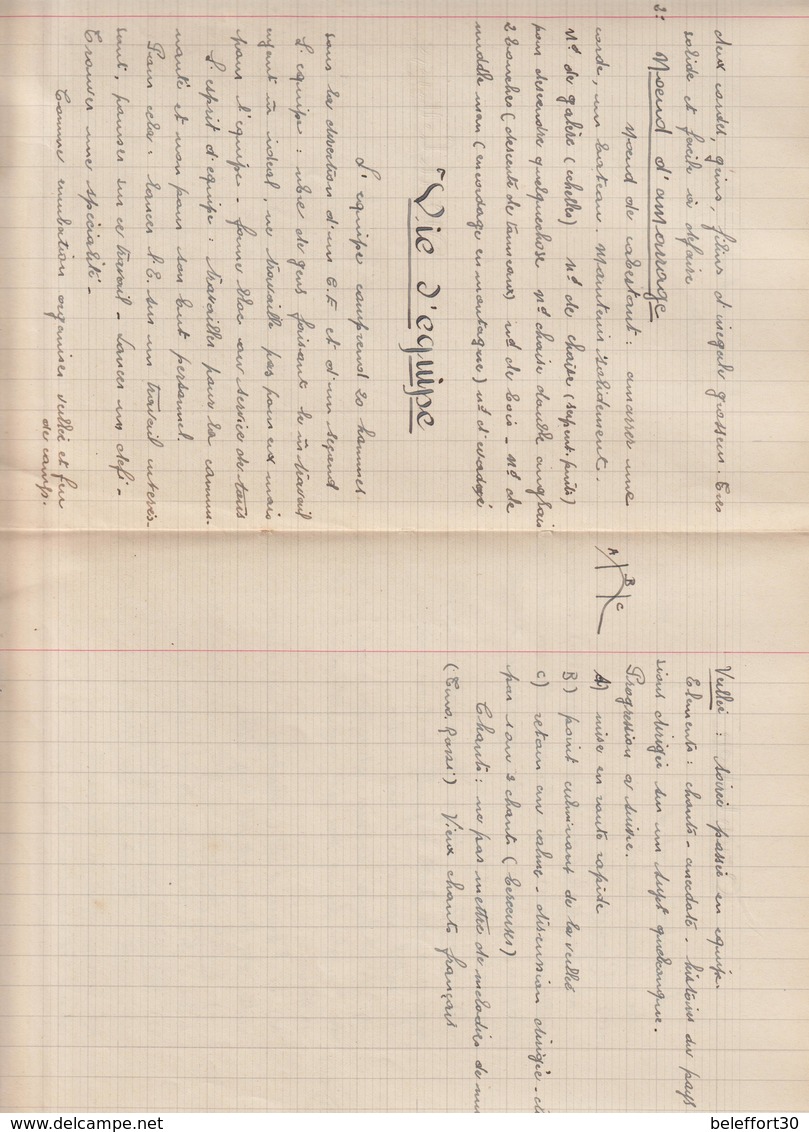 deux cordes, filins d'inégale grosseur. Très
solide et facile à défaire
2: Noeud d'amarrage
Noeud de cabestant : amarrer une
corde, un bateau. Maintenir solidement.
Nd de galère (échelles) Nd de chaise
pour descendre quelquechose Nd chaise double anglais
2 branches (descente de tonneaux) nd de bois - Nd de
middle man (encordage en montagne) nd d'
Vie d'équipe
L'équipe comprend 20 hommes
sous la direction d'un C.E et d'un second
L'équipe : de gens faisant le m travail
ayant m idéal, ne travaille pas pour eux mais
pour l'équipe - forme bloc au service de tous
L'esprit d'équipe : travailler pour la commu-
nauté et non pour son but personnel.
Pour cela : lancer l'E. sur un travail intéres-
sant, pousser sur ce travail - Lancer un défi -
Trouver une spécialité -
Comme organiser veillée et feu
de camp.
A
B
C
Veillée : soirée passée en équipe.
Eléments : chants - anecdote - histoires du pays
dirigée sur un sujet quelconque.
Progression à suivre.
A) mise en route rapide
B) point culminant de la veillée
C) retour au calme - discussion dirigée -
par 1 ou 2 chants (berceuses)
Chants : ne pas mettre de mélodies de
Vieux chants français
beleffort30